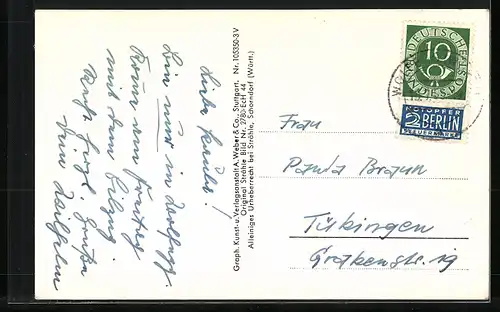 Liebe Paula!
Bin nur in Wolfegg.
Komme am Freitag
mit dem Eilzug.
Recht herzl. Grüße
Dein Wilhelm
Graph. Kunst- u. Verlagsanstalt A. Weber & Co. Stuttgart. Nr. 105350-3V
Original Strähle Bild Nr. 2780 EcH 44
Alleiniges Urheberrecht bei Strähle, Schorndorf (Württ.)
DEUTSCHE
10
NOTOPFER
2 BERLIN
STEUERMARKE
Frau
Paula Braun
Tübingen
Grabenstr. 19